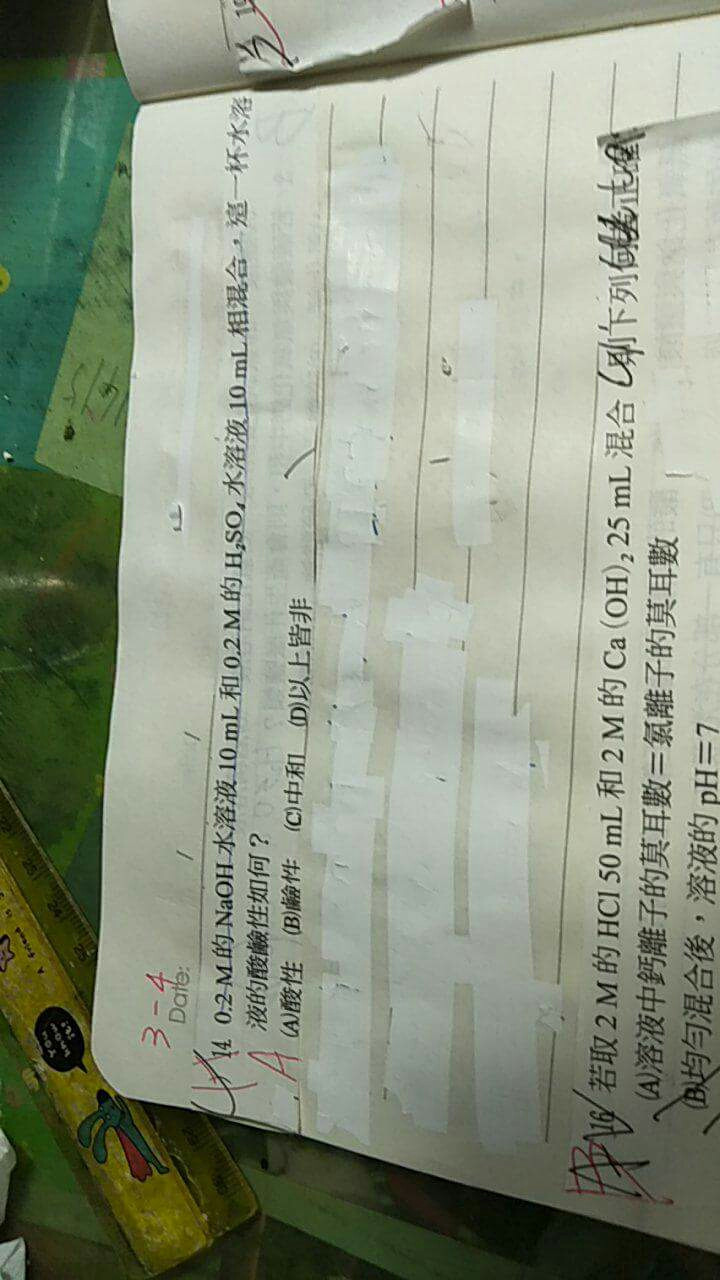 3-4
Date:
14 0.2 M 的 NaOH 水溶液 10 mL 和 0.2 M 的 H₂SO₄ 水溶液 10 mL 相混合，這一杯水溶
液的酸鹼性如何？
A (A)酸性 (B)鹼性 (C)中和 (D)以上皆非
B 16 若取 2 M 的 HCl 50 mL 和 2 M 的 Ca (OH)₂ 25 mL 混合 則下列
(A)溶液中鈣離子的莫耳數＝氯離子的莫耳數
(B)均勻混合後，溶液的 pH＝7
YOU
KNOW
IT?
A friend is